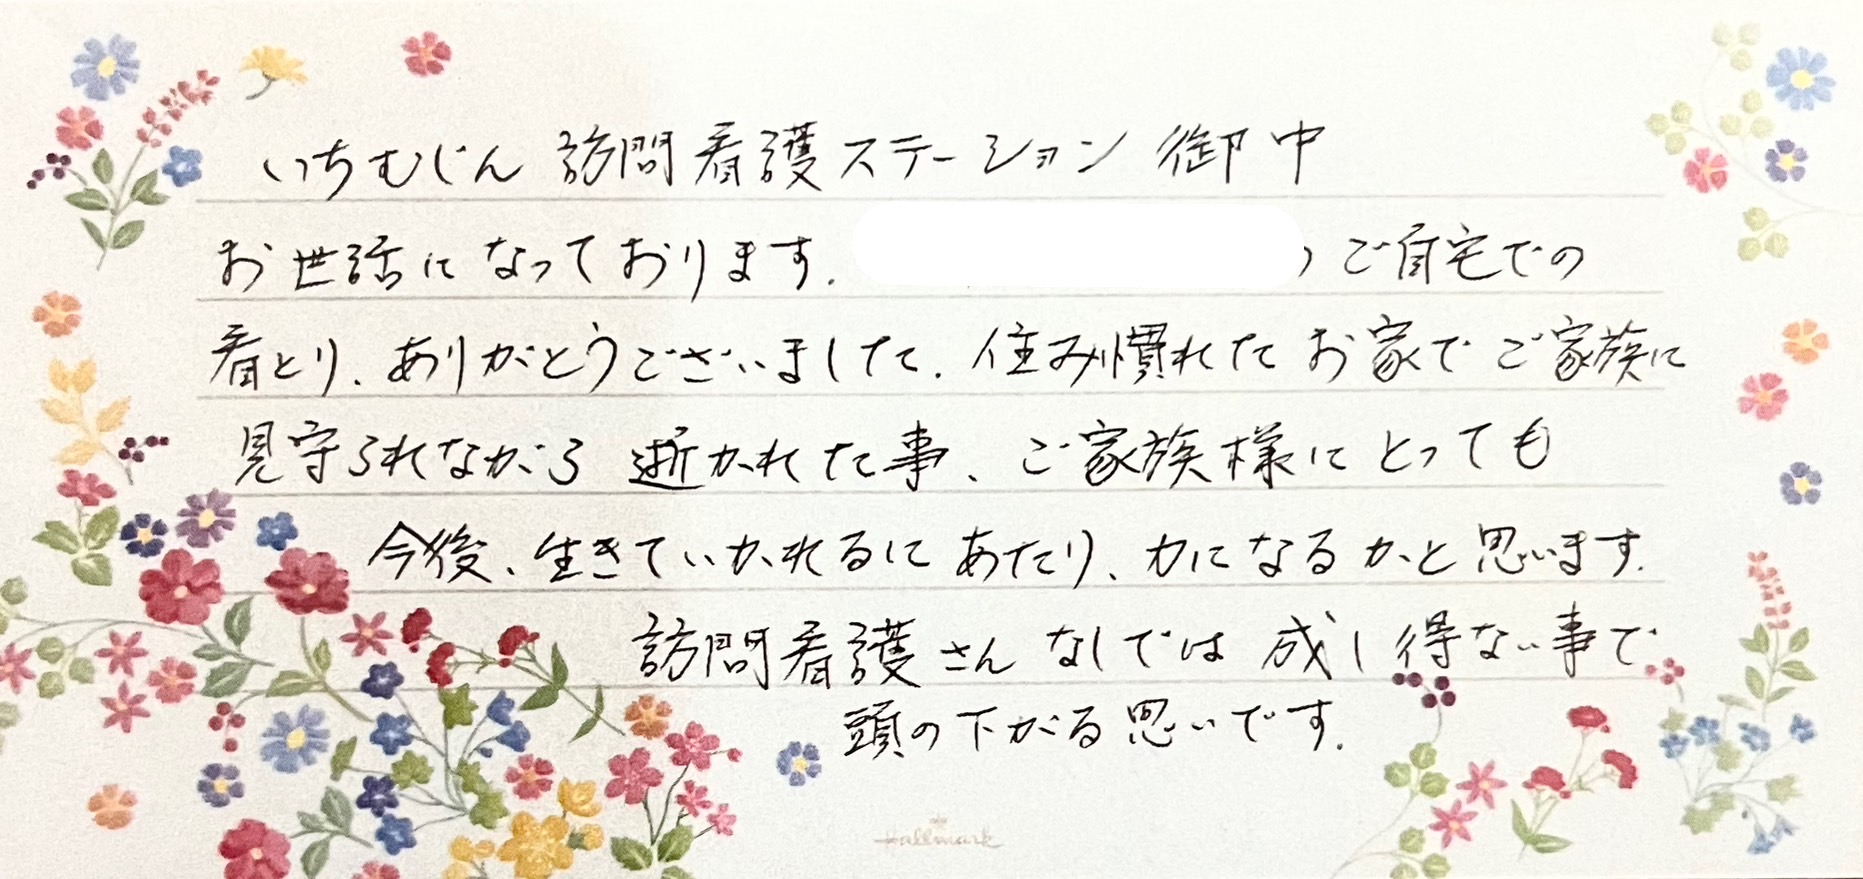 いちむじん 訪問看護ステーション 御中
お世話になっております. ご自宅での
看とり、ありがとうございました. 住み慣れたお家でご家族に
見守られながら 逝かれた事、ご家族様にとっても
今後、生きていかれるにあたり、力になるかと思います.
訪問看護さんなしでは 成し得ない事で
頭の下がる思いです.
Hallmark